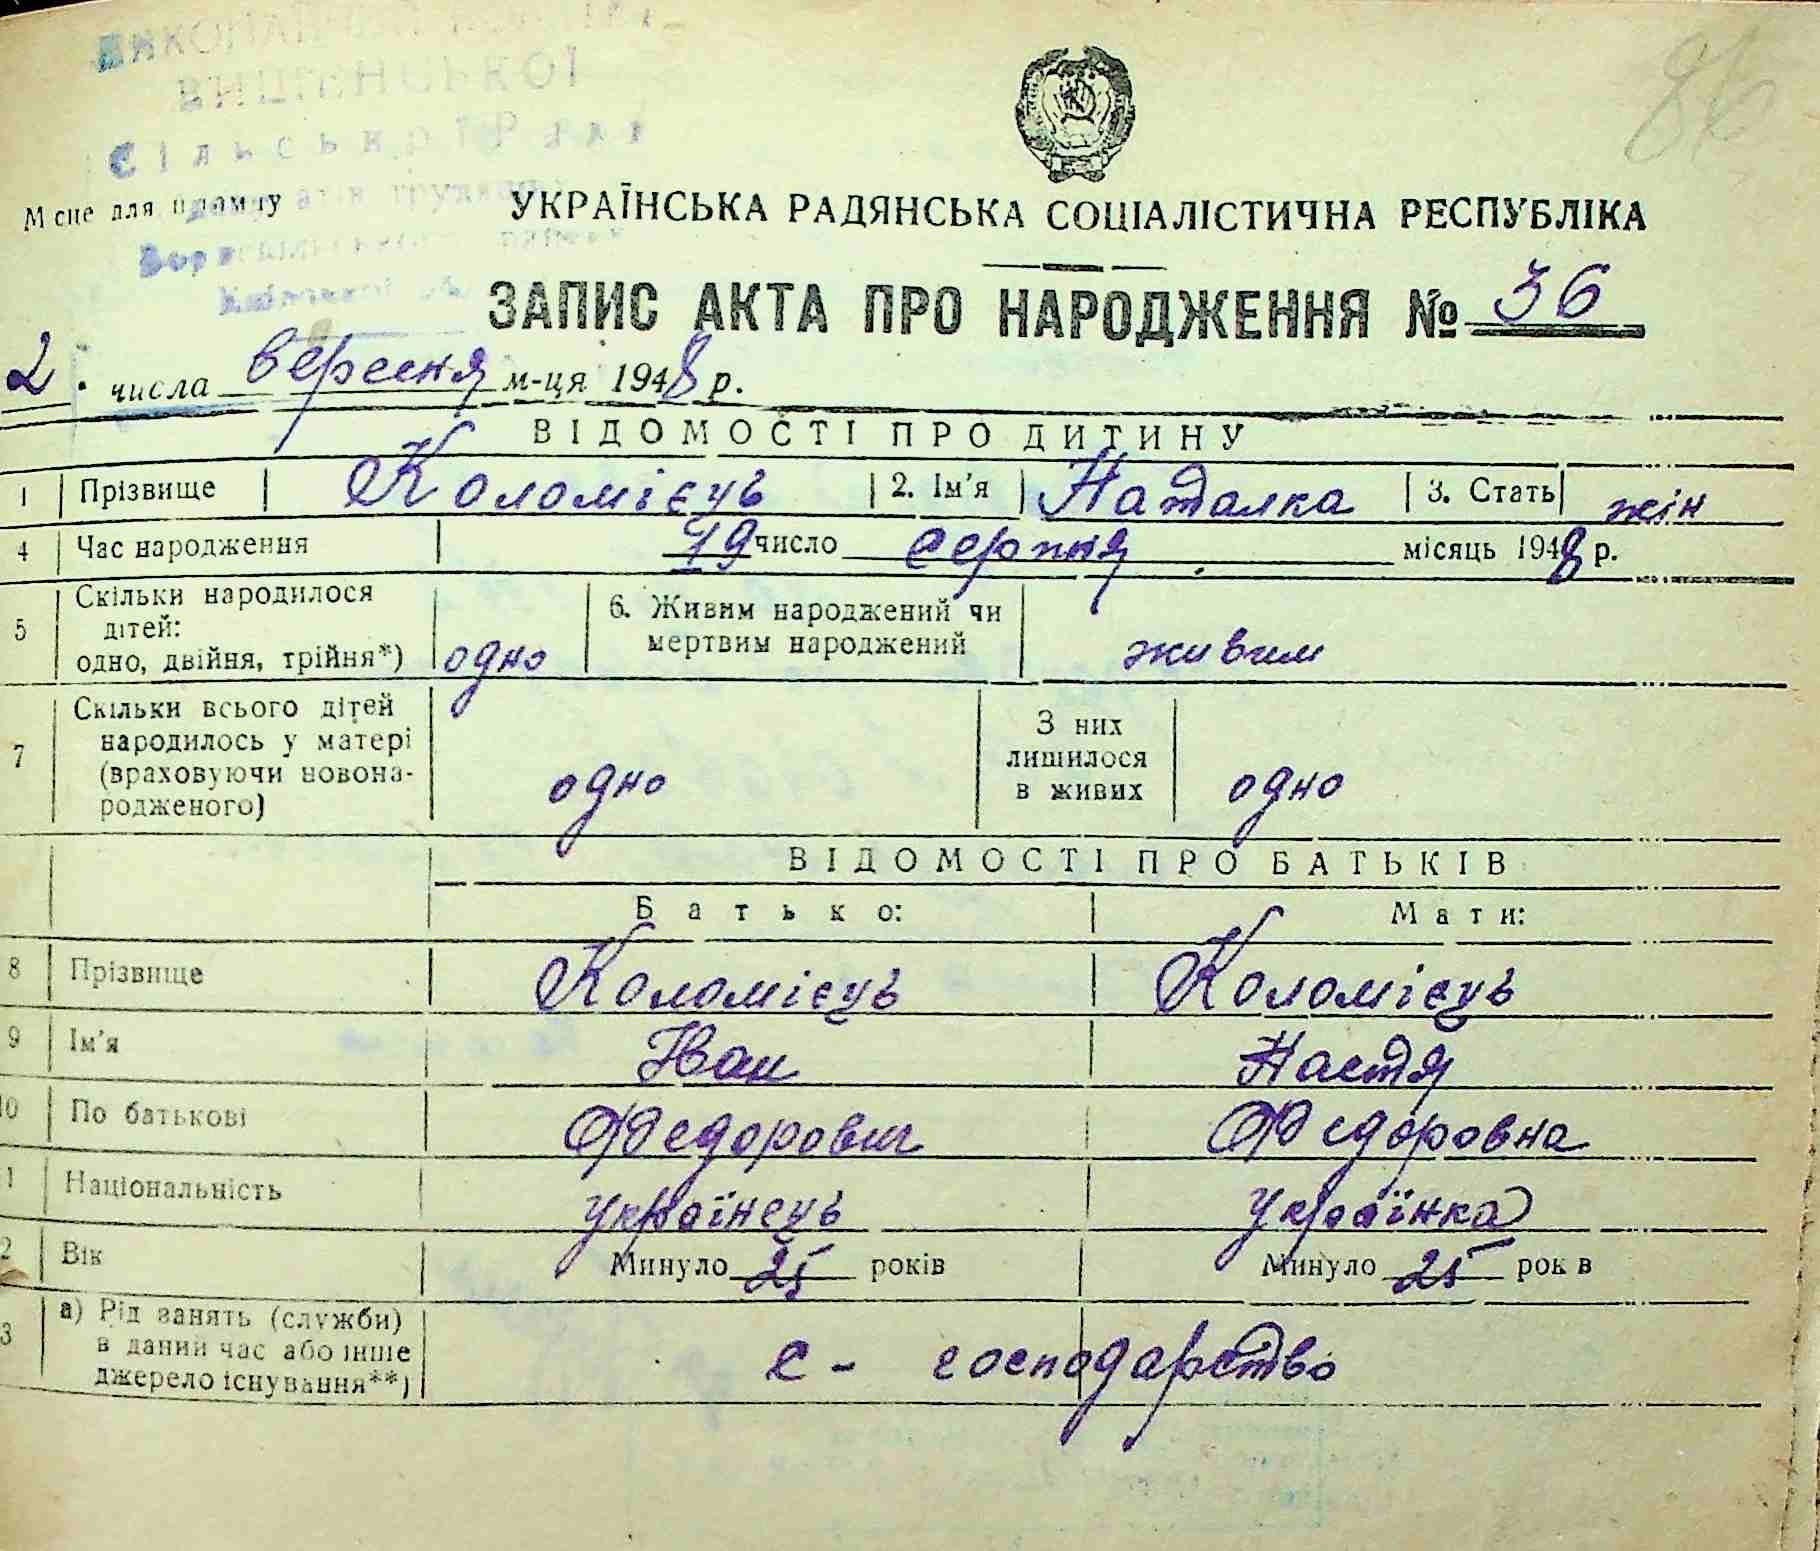 ВИШЕНСЬКОЇ
Сільської Ради
М сце для штампу
УКРАЇНСЬКА РАДЯНСЬКА СОЦІАЛІСТИЧНА РЕСПУБЛІКА
ЗАПИС АКТА ПРО НАРОДЖЕННЯ № 36
2 числа вересня м-ця 1948 р.
ВІДОМОСТІ ПРО ДИТИНУ
1 Прізвище Коломієць 2. Ім'я Наталка 3. Стать жін
4 Час народження 19 число серпня місяць 1948 р.
5 Скільки народилося
дітей:
одно, двійня, трійня*) одно
6. Живим народжений чи
мертвим народжений живим
7 Скільки всього дітей
народилось у матері
(враховуючи новона-
родженого) одно
З них
лишилося
в живих одно
ВІДОМОСТІ ПРО БАТЬКІВ
Батько: Мати:
8 Прізвище Коломієць Коломієць
9 Ім'я Иван Настя
10 По батькові Федорович Федоровна
1 Національність українець українка
2 Вік Минуло 25 років Минуло 25 рок в
3 а) Рід занять (служби)
в даний час або інше
джерело існування**)
с - господарство